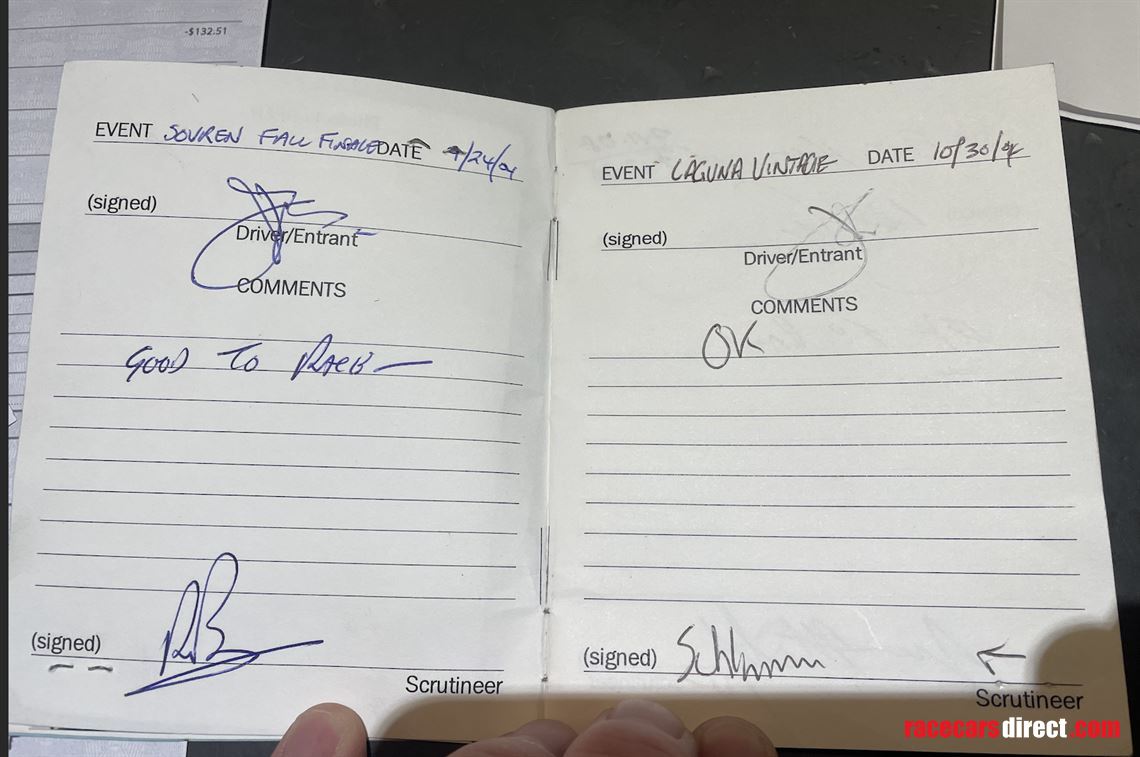 -$132.51
EVENT SOVREN FALL FINALE DATE 9/24/04
(signed)
Driver/Entrant
COMMENTS
GOOD TO RACE
(signed)
Scrutineer
EVENT LAGUNA VINTAGE DATE 10/30/04
(signed)
Driver/Entrant
COMMENTS
OK
(signed)
Scrutineer
racecarsdirect.com